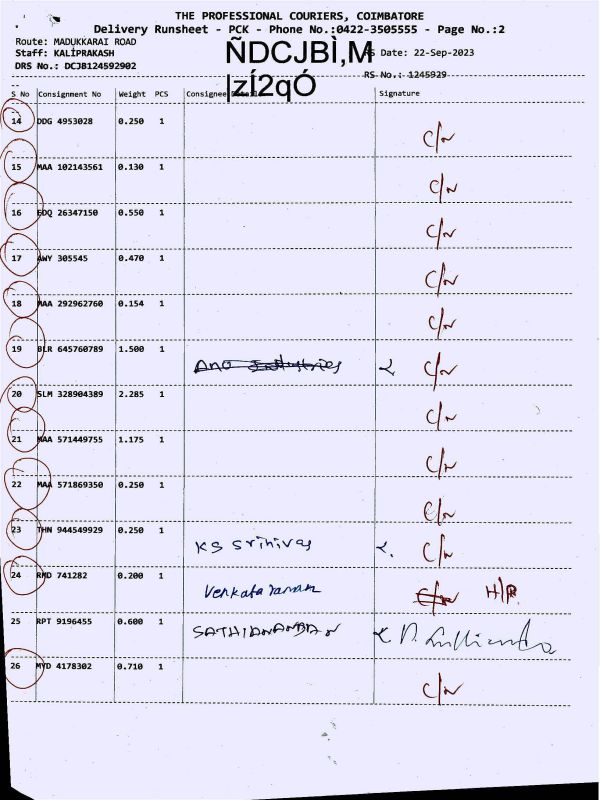 THE PROFESSIONAL COURIERS, COIMBATORE
Delivery Runsheet - PCK - Phone No.:0422-3505555 - Page No.:2
Route: MADUKKARAI ROAD
Staff: KALIPRAKASH ÑDCJBÌ,M Date: 22-Sep-2023
DRS No.: DCJB124592902 |zÍ2qÓ RS No.: 1245929
S No Consignment No Weight PCS Consignee Signature
14 DDG 4953028 0.250 1 C/N
15 MAA 102143561 0.130 1 C/N
16 EDQ 26347150 0.550 1 C/N
17 AWY 305545 0.470 1 C/N
18 MAA 292962760 0.154 1 C/N
19 BLR 645760789 1.500 1 C/N
20 SLM 328904389 2.285 1 C/N
21 MAA 571449755 1.175 1 C/N
22 MAA 571869350 0.250 1 C/N
23 THN 944549929 0.250 1 KS Srinivas C/N
24 RMD 741282 0.200 1 Venkataraman C/N H/R.
25 RPT 9196455 0.600 1 SATHIANANDAN
26 MYD 4178302 0.710 1 C/N